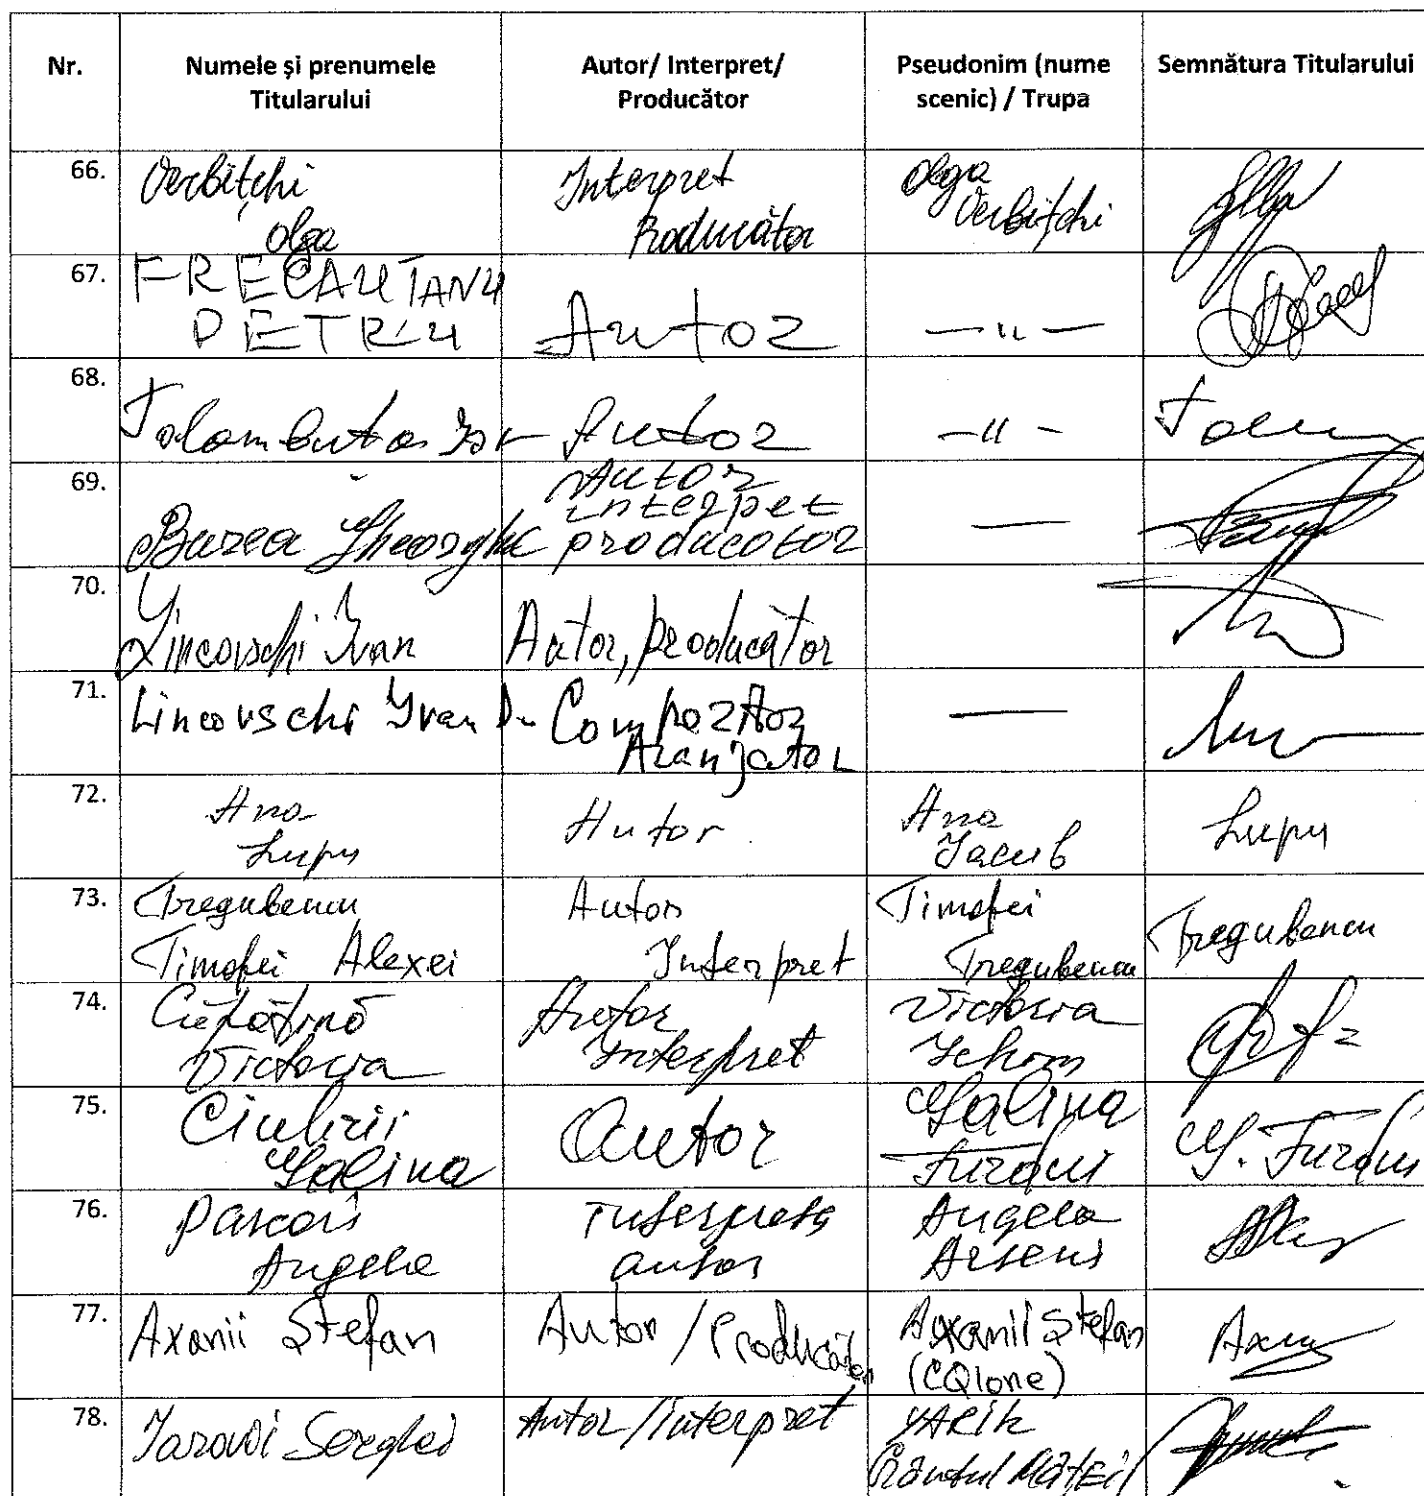 Nr.
Numele și prenumele
Titularului
Autor/ Interpret/
Producător
Pseudonim (nume
scenic) / Trupa
Semnătura Titularului
66.
Verbițchi
Olga
Interpret
Producător
Olga
Verbițchi
67.
FRECAUTANU
PETRU
Autor
— " —
68.
Talambuta Ion
Autor
— " —
69.
Burea Gheorghe
Autor
interpet
producotor
—
70.
Lincovschi Ivan
Autor, producător
71.
Lincovschi Ivan
Compozitor
Aranjator
—
72.
Ana
Lupu
Autor
Ana
Iacub
Lupu
73.
Tregubencu
Timofei Alexei
Autor
Interpret
Timofei
Tregubencu
Tregubencu
74.
Victoria
Autor
Interpret
Victoria
75.
Galina
Autor
Galina
Furdui
G. Furdui
76.
Angela
autor
Angela
Arseni
77.
Axanii Stefan
Autor / Producător
Axanii Stefan
(CQlone)
78.
Iarovoi Serghei
Autor/interpret
YARIK